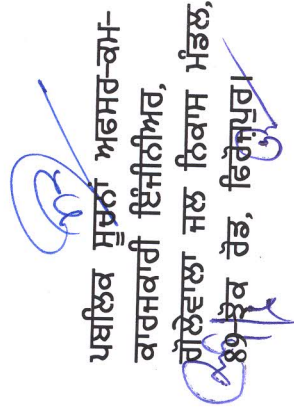 ਪਬਲਿਕ ਸੂਚਨਾ ਅਫਸਰ-ਕਮ-
ਕਾਰਜਕਾਰੀ ਇੰਜੀਨੀਅਰ,
ਗੋਲੇਵਾਲਾ ਜਲ ਨਿਕਾਸ ਮੰਡਲ,
ਰੋਡ, ਫਿਰੋਜ਼ਪੁਰ।